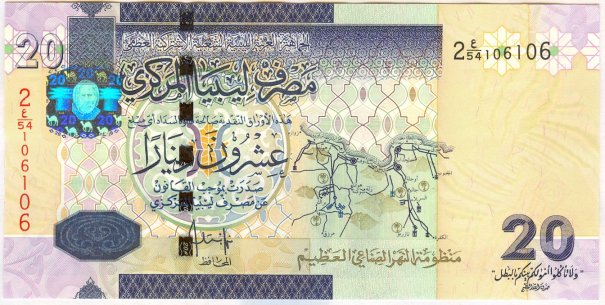 20
2 ع/54 106106
الجماهيرية العربية الليبية الشعبية الاشتراكية العظمى
مصرف ليبيا المركزي
هذه الأوراق النقدية صالحة لسداد أي مبلغ
عشرون ديناراً
صدرت بموجب القانون
عن مصرف ليبيا المركزي
المحافظ
2 ع/54 106106
20 20
منظومة النهر الصناعي العظيم
20
"ولا تأكلوا أموالكم بينكم بالباطل"